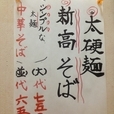 太硬麺
新高そば
シンプルな
太麺
中華そば
(大)代七五
(並)代六五